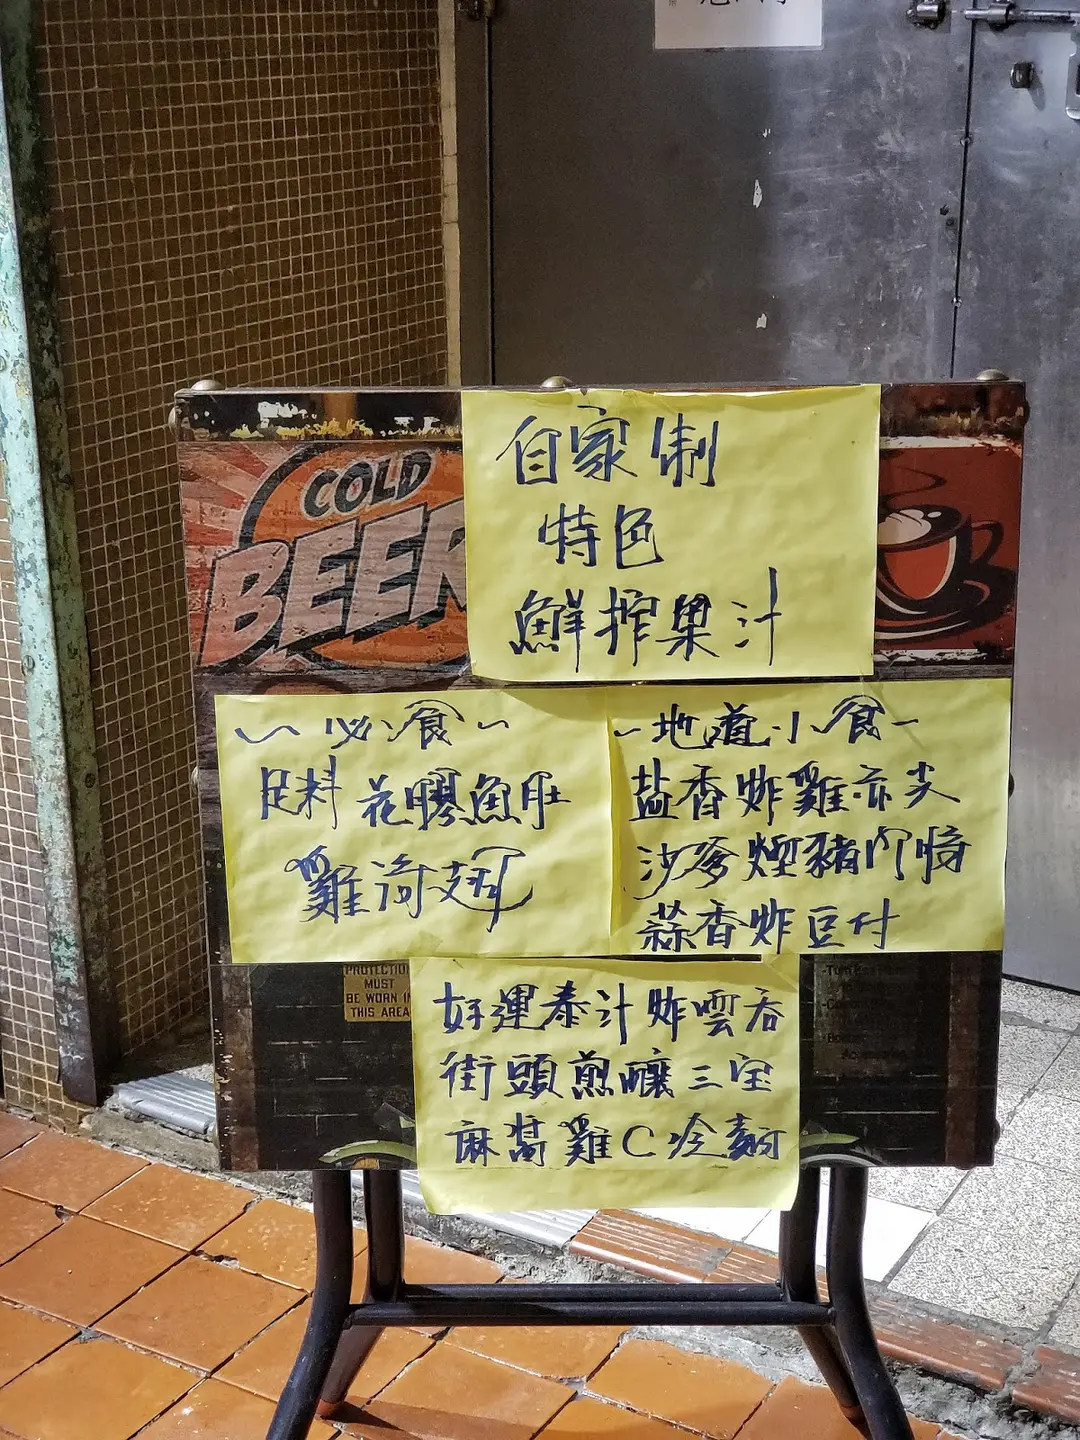 自家制
特色
鮮搾果汁
COLD
BEER
~必食~
足料 花膠魚肚
雞 翅
-地道小食-
盐香炸雞亦尖
沙爹煙豬门
蒜香炸豆付
PROTECTION
MUST
BE WORN IN
THIS AREA
好運泰汁炸雲吞
街頭煎釀三宝
麻 雞C冷麵